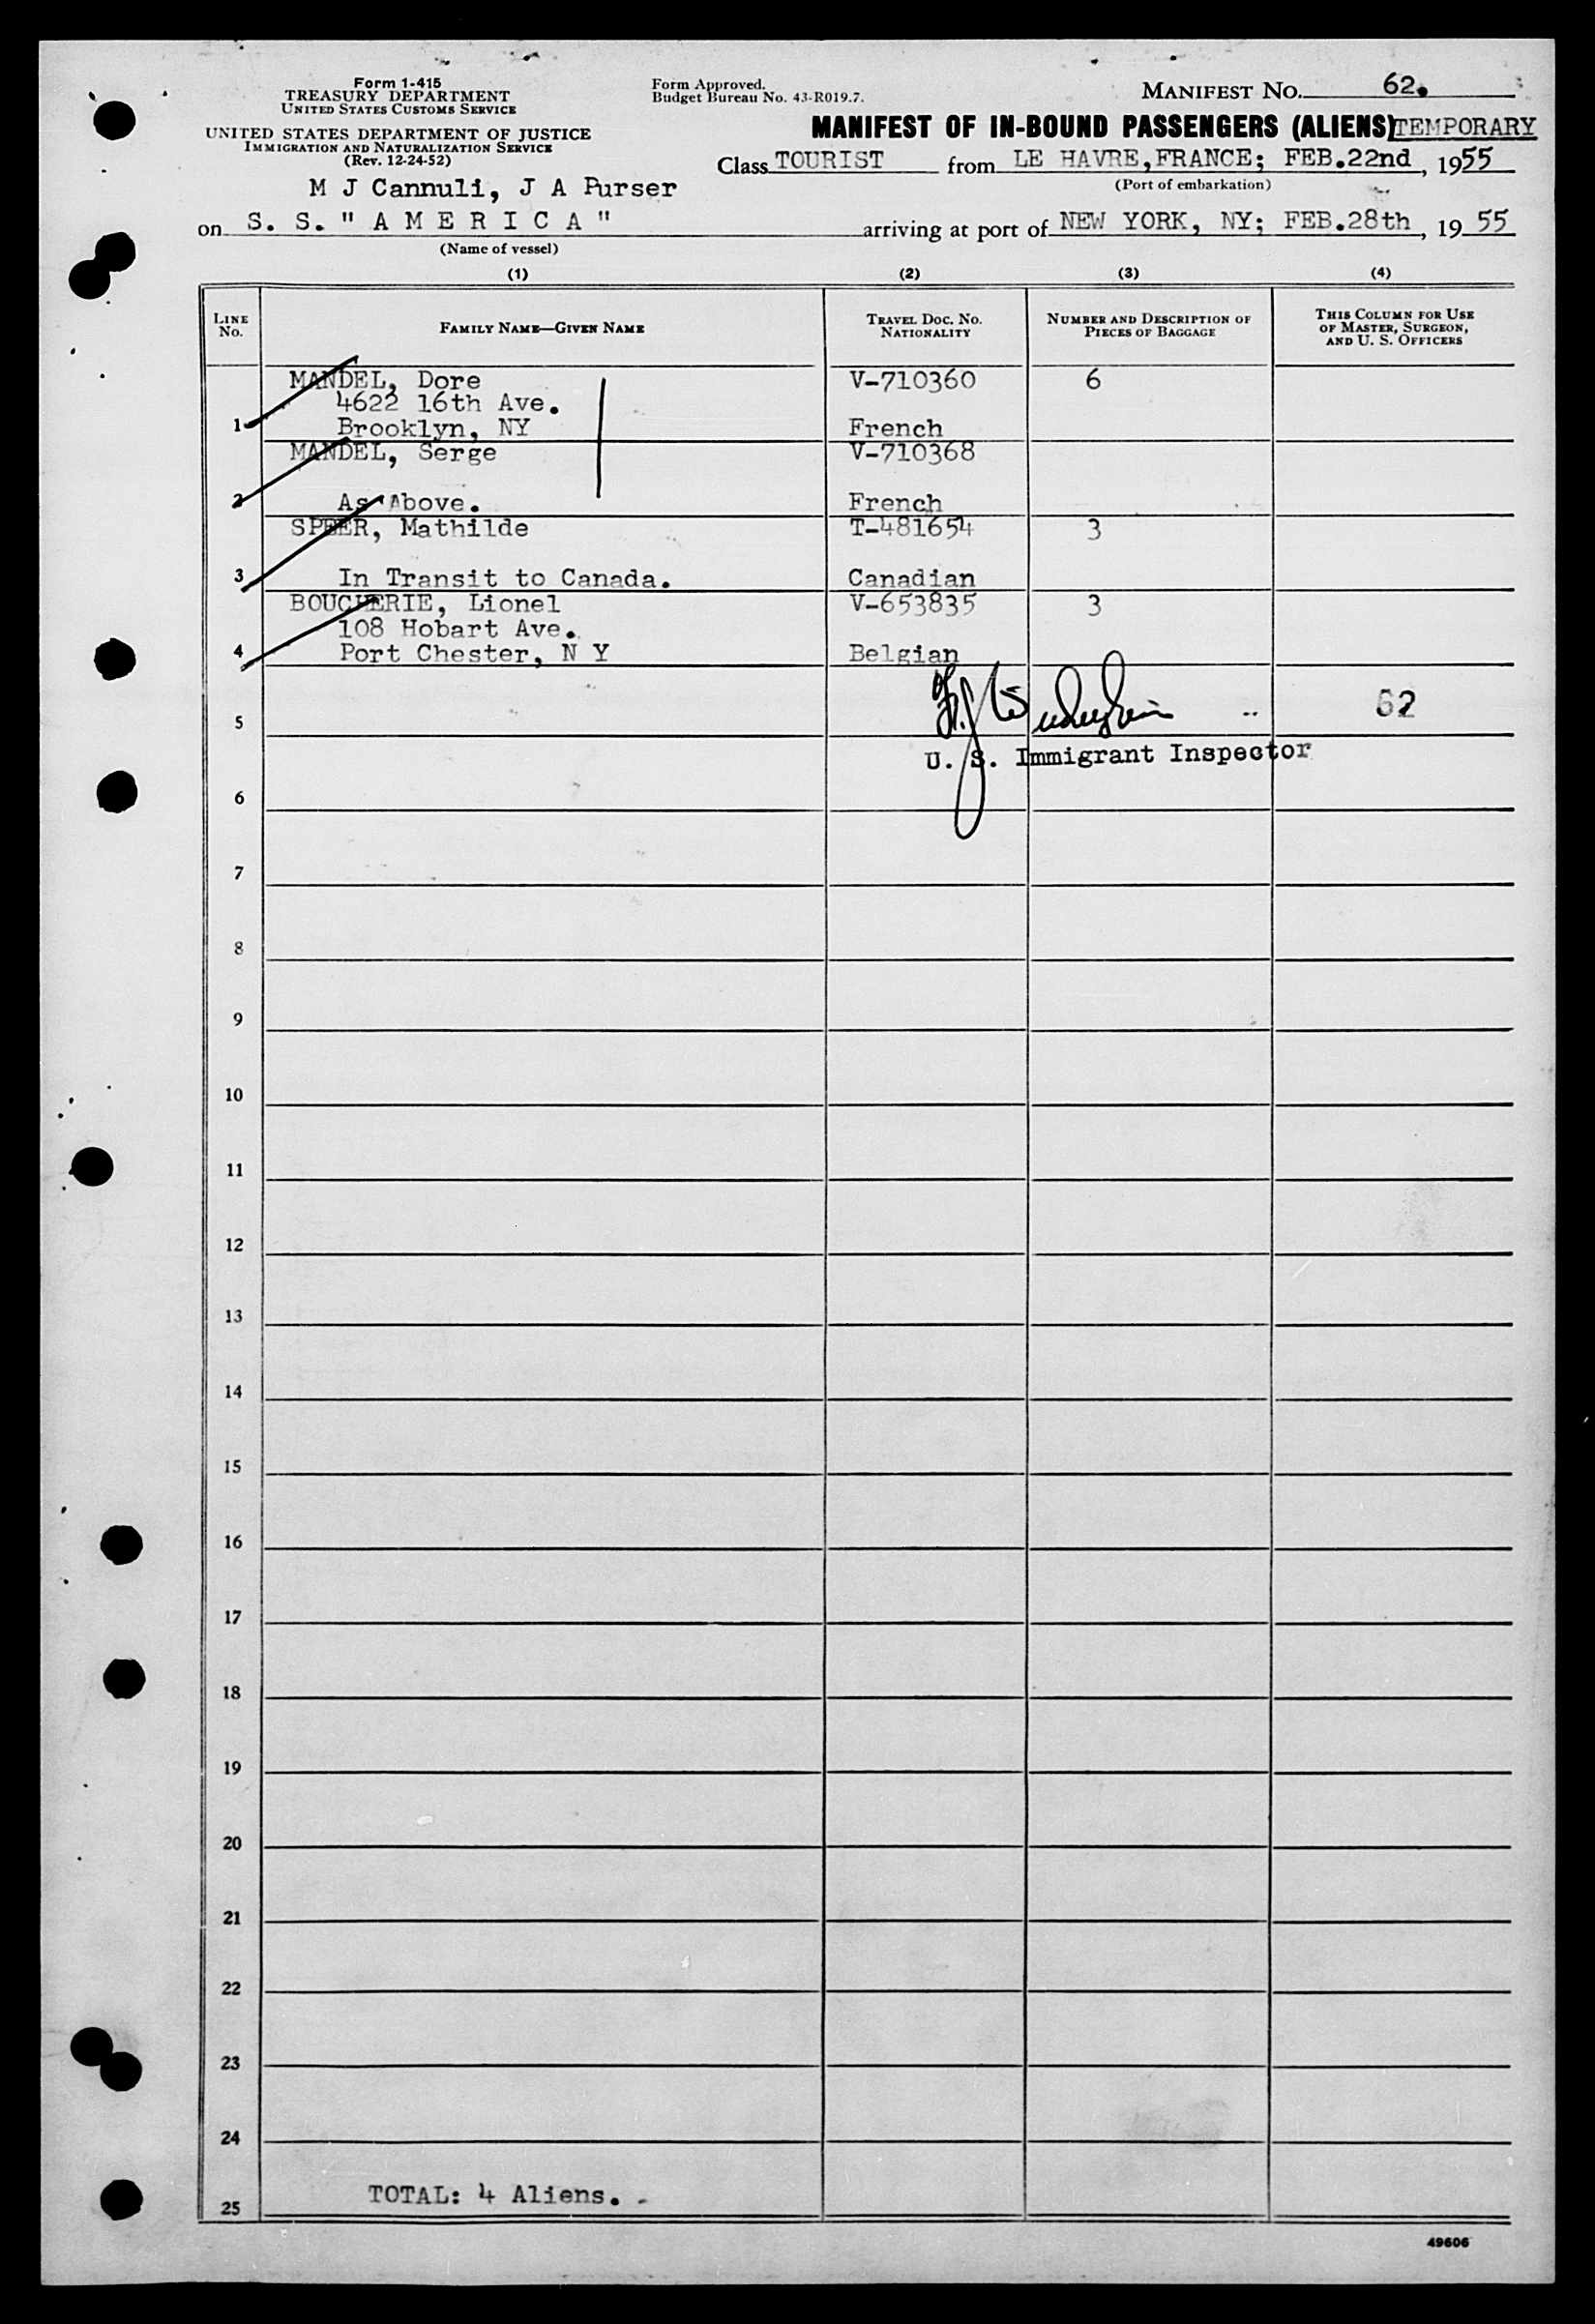 Form 1-415
TREASURY DEPARTMENT
UNITED STATES CUSTOMS SERVICE
UNITED STATES DEPARTMENT OF JUSTICE
IMMIGRATION AND NATURALIZATION SERVICE
(Rev. 12-24-52)
Form Approved.
Budget Bureau No. 43-R019.7.
MANIFEST NO. 62.
MANIFEST OF IN-BOUND PASSENGERS (ALIENS) TEMPORARY
Class TOURIST from LE HAVRE, FRANCE; FEB.22nd, 1955
(Port of embarkation)
M J Cannuli, J A Purser
on S. S. " A M E R I C A " arriving at port of NEW YORK, NY; FEB.28th, 19 55
(Name of vessel)
(1) (2) (3) (4)
LINE No. FAMILY NAME—GIVEN NAME TRAVEL DOC. NO. NATIONALITY NUMBER AND DESCRIPTION OF PIECES OF BAGGAGE THIS COLUMN FOR USE OF MASTER, SURGEON, AND U. S. OFFICERS
MANDEL, Dore V-710360 6
4622 16th Ave.
1 Brooklyn, NY French
MANDEL, Serge V-710368
2 As Above. French
SPEER, Mathilde T-481654 3
3 In Transit to Canada. Canadian
BOUCHERIE, Lionel V-653835 3
108 Hobart Ave.
4 Port Chester, N Y Belgian
5 62
U. S. Immigrant Inspector
6
7
8
9
10
11
12
13
14
15
16
17
18
19
20
21
22
23
24
25 TOTAL: 4 Aliens. -
49606